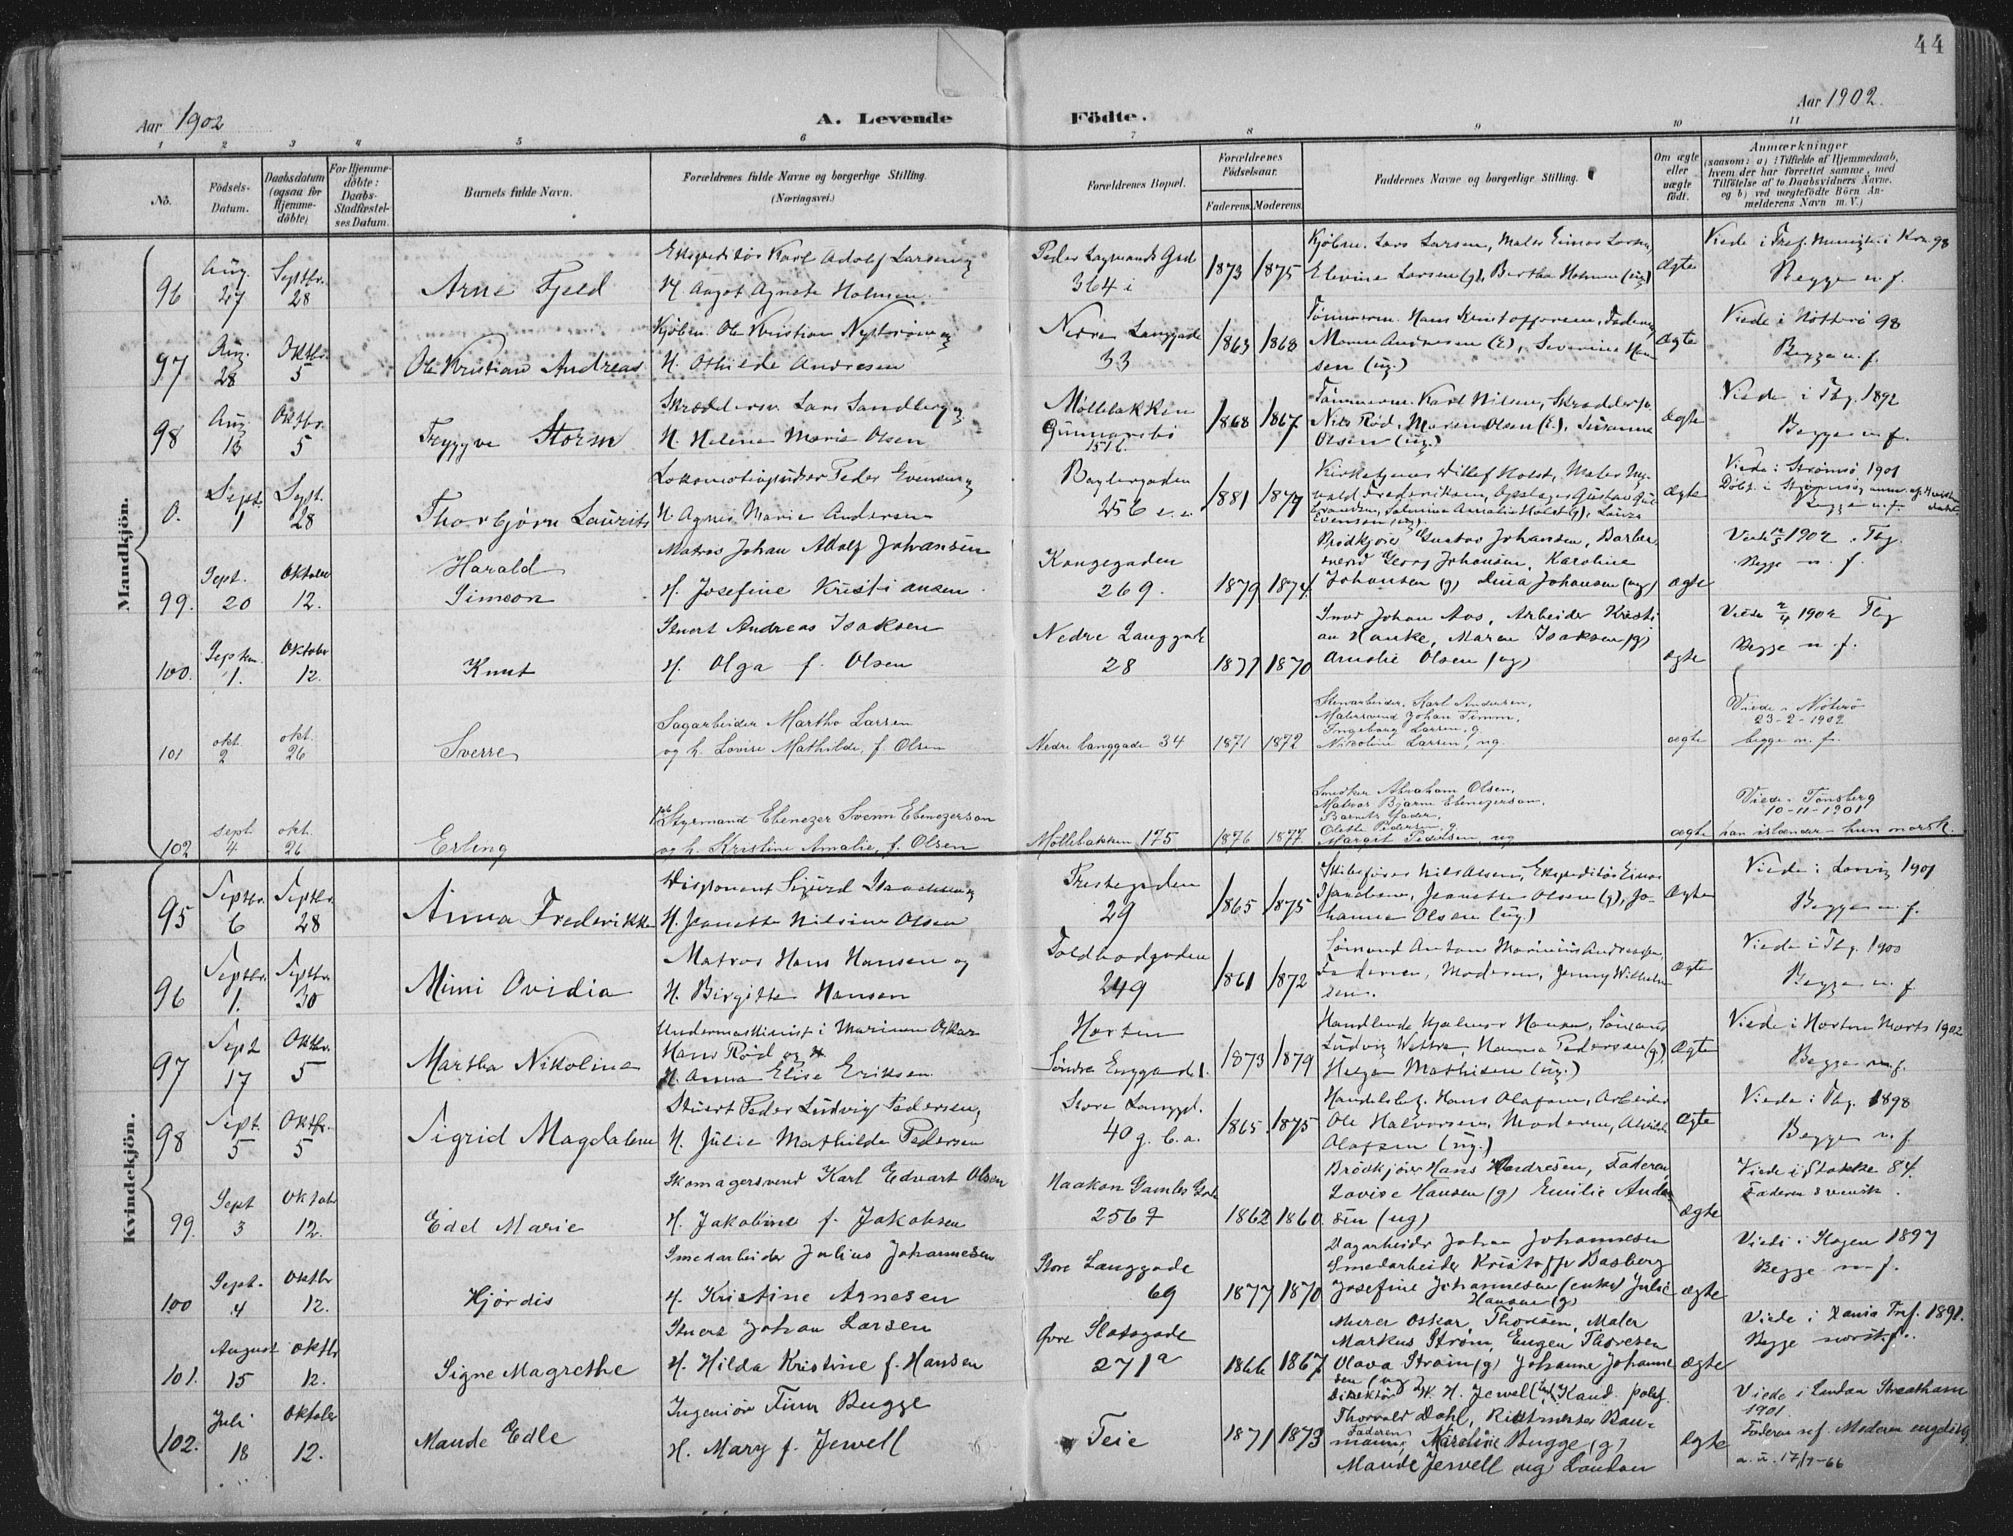 44
Aar 1902
A. Levende
Fødte.
Aar 1902.
1 2 3 4 5 6 7 8 9 10 11
No.
Fødsels-Datum.
Daabsdatum (ogsaa for Hjemmedøbte)
For Hjemmedøbte: Daabs-Stadfæstelses Datum.
Barnets fulde Navn.
Forældrenes fulde Navne og borgerlige Stilling.
(Næringsvei.)
Forældrenes Bopæl.
Forældrenes Fødselsaar.
Faderens. Moderens.
Faddernes Navne og borgerlige Stilling.
Om ægte eller uægte født.
Anmærkninger
(saasom: a) i Tilfælde af Hjemmedaab, hvem der har forrettet samme, med Tilføielse af to Daabsvidners Navne, og b) ved uægtefødte Børn Anmelderens Navn m. V.)
Mandkjön.
96 Aug. 27 Septbr. 28 Arne Fjeld
Ekspeditør Karl Adolf Larsen og
H. Aagot Agnete Holmen
Peder Lagmands Grd 364 i 1873 1875
Kjøbm. Lars Larsen, Maler Einar Larsen,
Elevine Larsen (g), Bertha Holmen (ug)
Ægte
Begge n. f.
97 Aug. 28 Oktbr. 5 Ole Kristian Andreas
Kjøbm. Ole Kristian Nystrøm og
H. Othilde Andresen
Nedre Langgade 33 1863 1868
Tømmerm. Hans Kristoffersen, Faderen,
Maren Andresen (E), Severine Hansen (ug.)
Ægte
Viede i Nötterö 98
Begge n. f.
98 Aug. 13 Oktbr. 5 Tryggve Storm
Skræddersv. Lars Sandberg og
H. Helene Marie Olsen
Møllebakken
Gunnarsbö 151 b. 1868 1867
Tømmerm. Karl Nilsen, Skræddersv.
Nils Rød, Maren Olsen (E), Susanne
Olsen (ug.)
Ægte
Viede i Tbg. 1892
Begge n. f.
0. Sept. 1 Sept. 28 Thorbjørn Laurits
Lokomotivpudser Peder Evensen og
H. Agnes Marie Andersen
Baglergaden 256 1881 1879
Kirketjener Ditlef Holst, Maler
Ægte
Viede i Strømsö 1901
Begge n. f.
99. Sept. 20 Oktober 12. Harald
Simeon
Matros Johan Adolf Johansen
H. Josefine Kristiansen
Kongegaden 269. 1879 1874.
Brødkjører Gustav Johansen, Barber-
svend Georg Johansen, Karoline
Johansen (g) Lina Johansen (ug)
ægte
Begge n. f.
100. Septbr. 1. Oktober 12. Knut
Stuert Andreas Isaksen
H. Olga f. Olsen
Nedre Langgade 28 1871 1870
Snedk. Johan Aos, Arbeider Kristi-
an Hauke, Maren Isaksen (g)
Amalie Olsen (ug)
ægte
Viede 2/4 1902 Tbg
Begge n. f.
101 okt. 2 okt. 26 Sverre
Sagarbeider Martho Larsen
og h. Lovise Mathilde, f. Olsen
Nedre langgade 34 1871 1872
Stenarbeider, Karl Andersen,
Malersvend Johan Timm,
Ingeborg Larsen, g.
Nikoline Larsen, ug.
ægte
Viede i Nöterö
23-2-1902
begge n. f.
102 sept. 4 okt. 26 Erling
Styrmand Ebenezer Svenn Ebenezerson
og h. Kristine Amalie, f. Olsen
Møllebakken 175. 1876 1877.
Smedker Abraham Olsen,
Matros Bjarne Ebenezerson,
Barnets fader,
Olette Pedersen, g.
Margit Pedersen, ug
ægte
Viede i Tönsberg
10-11-1901
han islænder - hun norsk.
Kvindekjön.
95 Septbr. 6 Septbr. 28 Anna Frederikke
Disponent Sigurd Isaachsen og
H. Jeanette Nilsine Olsen
Præstegaden 29 1865 1875
Skibsfører Nils Olsen, Ekspeditör Einar
Isaachsen, Jeanette Olsen (g), Jo-
hanne Olsen (ug.)
Ægte
Viede i Larvig 1901
Begge n. f.
96 Septbr. 1. Septbr. 30 Mimi Ovidia
Matros Hans Hansen og
H. Birgitte Hansen
Toldbodgaden 249 1861 1872
Sømand Anton Marinius Andreassen,
Faderen, Moderen, Jenny Wilhelmsen.
Ægte
Viede i Tbg. 1900
Begge n. f
97 Sept 17 Oktbr. 5 Martha Nikoline
Undermaskinist i Marinen Oskar
Hans Rød og
H. Anna Elise Eriksen
Horten
Søndre Enggade 1. 1873 1879
Handlende Hjalmar Hansen, Sømand
Ludvig Wettre, Hanna Pedersen (g),
Helga Mathisen (ug.)
Ægte
Viede i Horten Marts 1902
Begge n. f.
98 Sept. 5 Oktbr. 5 Sigrid Magdalene
Stuert Peder Ludvig Pedersen,
H. Julie Mathilde Pedersen
Store Langgd. 40 g. b. a. 1865. 1875
Handelsbg. Hans Olafsen, Arbeider
Ole Halvorsen, Moderen, Alvilde
Olafsen (ug.)
Ægte
Viede i Tbg. 1898
Begge n. f
99. Sept 3 Oktober 12. Edel Marie
Skomagersvend Karl Edvart Olsen
H. Jakobine f. Jakobsen
Haakon Gamles Gade 2567 1862 1860.
Brødkjører Hans Andresen, Faderen,
Lovise Hansen (g) Emilie Andersen (ug)
ægte
Viede i Stokke 84.
Faderen svensk.
100 Sept. 4 Oktbr 12. Hjørdis
Smedarbeider Julius Johannesen
H. Kristine Arnesen
Store Langgade 69 1877 1870
Dagarbeider Johan Johannesen
Smedarbeider Kristoffer Basberg
Josefine Johannesen (enke) Julie
Hansen (g)
ægte
Viede i Skogen 1897
Begge n. f.
101. August 15 Oktbr 12. Signe Magrethe
Stuert Johan Larsen
H. Hilda Kristine f. Hansen
Øvre Slotsgade 271 a 1866 1867
Murer Oskar Thorsen, Maler
Markus Strøm, Eugen Thoresen
Olava Strøm (g) Johanne Johannesen (ug)
ægte
Begge norsk f.
102. Juli 18 Oktober 12. Maude Edle
Ingeniør Finn Bugge
H. Mary f. Jewell
Teie 1871 1873
Direktör W. H. Jewell, Kand. polyt.
Thorvald Dahl, Ritmester Bau-
mann, Faderen Nareline Bugge (g)
Maude Jewell ug London
Ægte
Viede i London Streatham
1901
Faderen ref. Moderen engelsk
a. u. 17/7-66